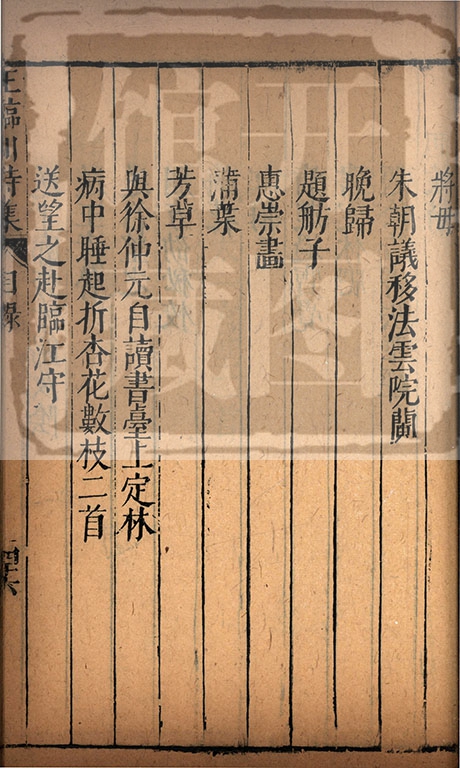 將毋
朱朝議移法雲院蘭
晚歸
題舫子
惠崇畫
蒲葉
芳草
與徐仲元自讀書臺上定林
病中睡起折杏花數枝二首
送望之赴臨江守
王臨川詩集 目錄